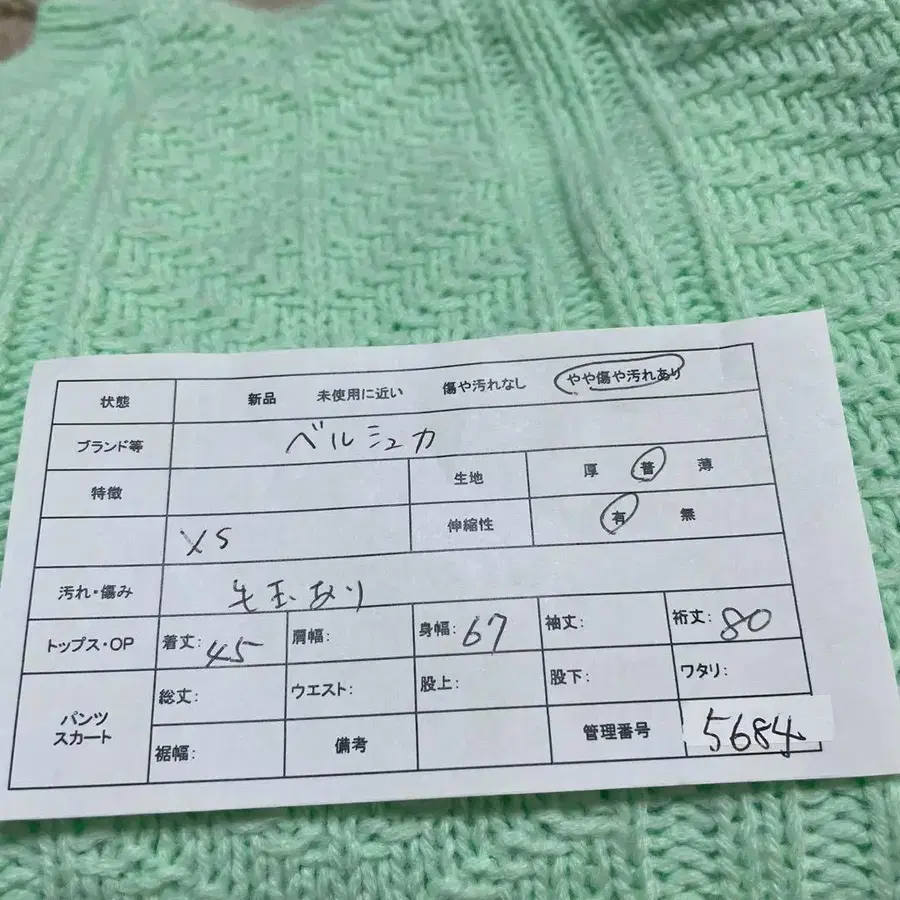 状態 新品 未使用に近い 傷や汚れなし やや傷や汚れあり
ブランド等 ベルシュカ
特徴 生地 厚 普 薄
XS 伸縮性 有 無
汚れ・傷み 毛玉あり
トップス・OP 着丈: 45 肩幅: 身幅: 67 袖丈: 裄丈: 80
パンツ
スカート
総丈: ウエスト: 股上: 股下: ワタリ:
裾幅: 備考 管理番号 5684